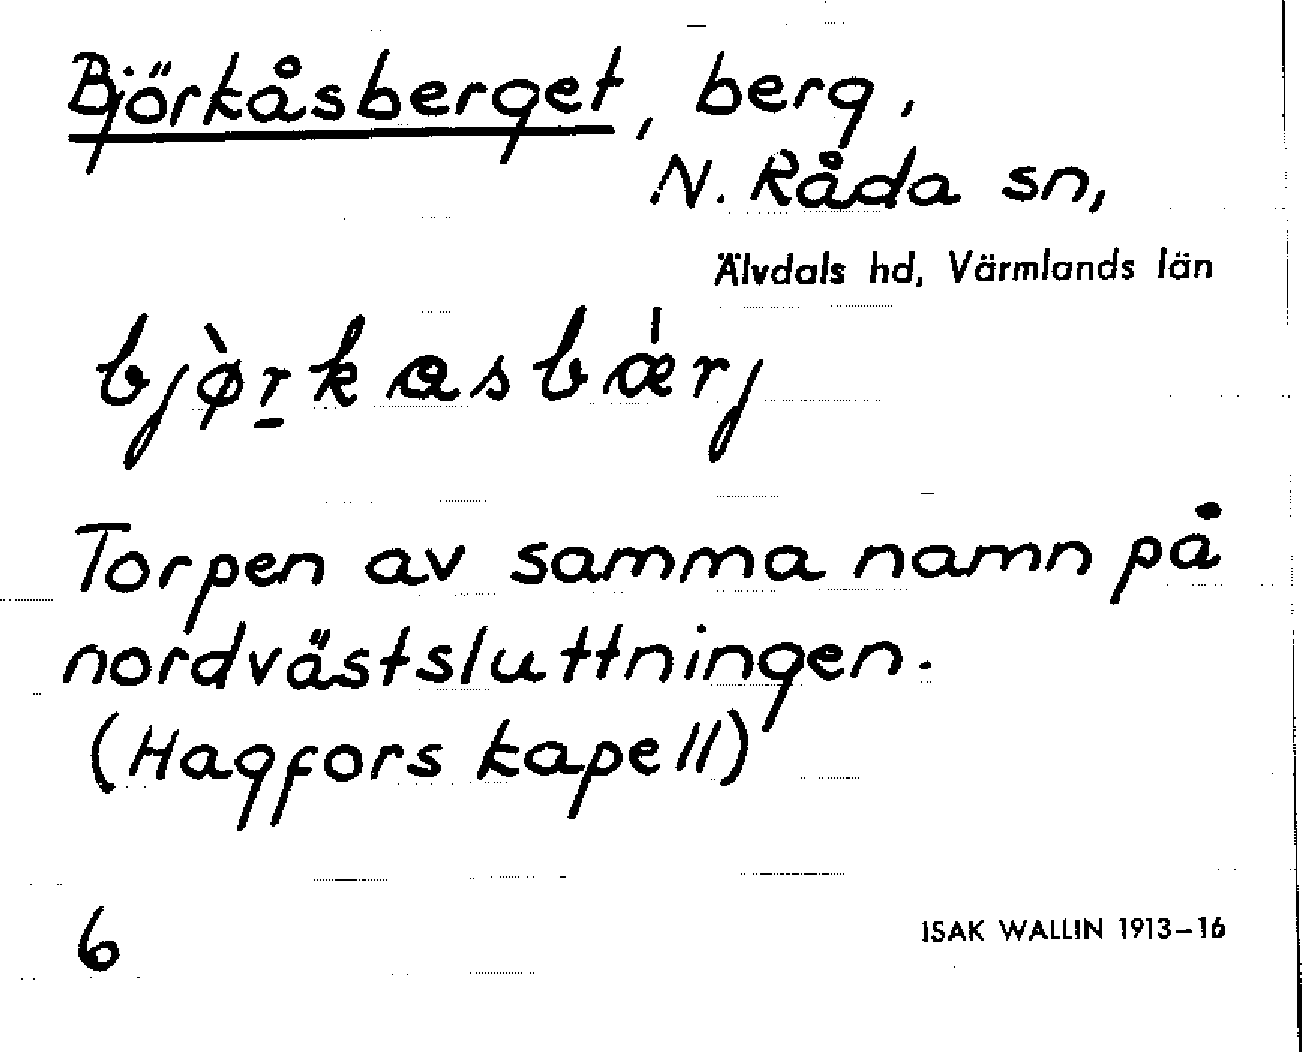 Björkåsberget, berg.
N. Råda sn,
Älvdals hd, Värmlands län
bjø̀r̠kasbǽrj
Torpen av samma namn på
nordvästsluttningen.
(Hagfors kapell)
6
ISAK WALLIN 1913–16